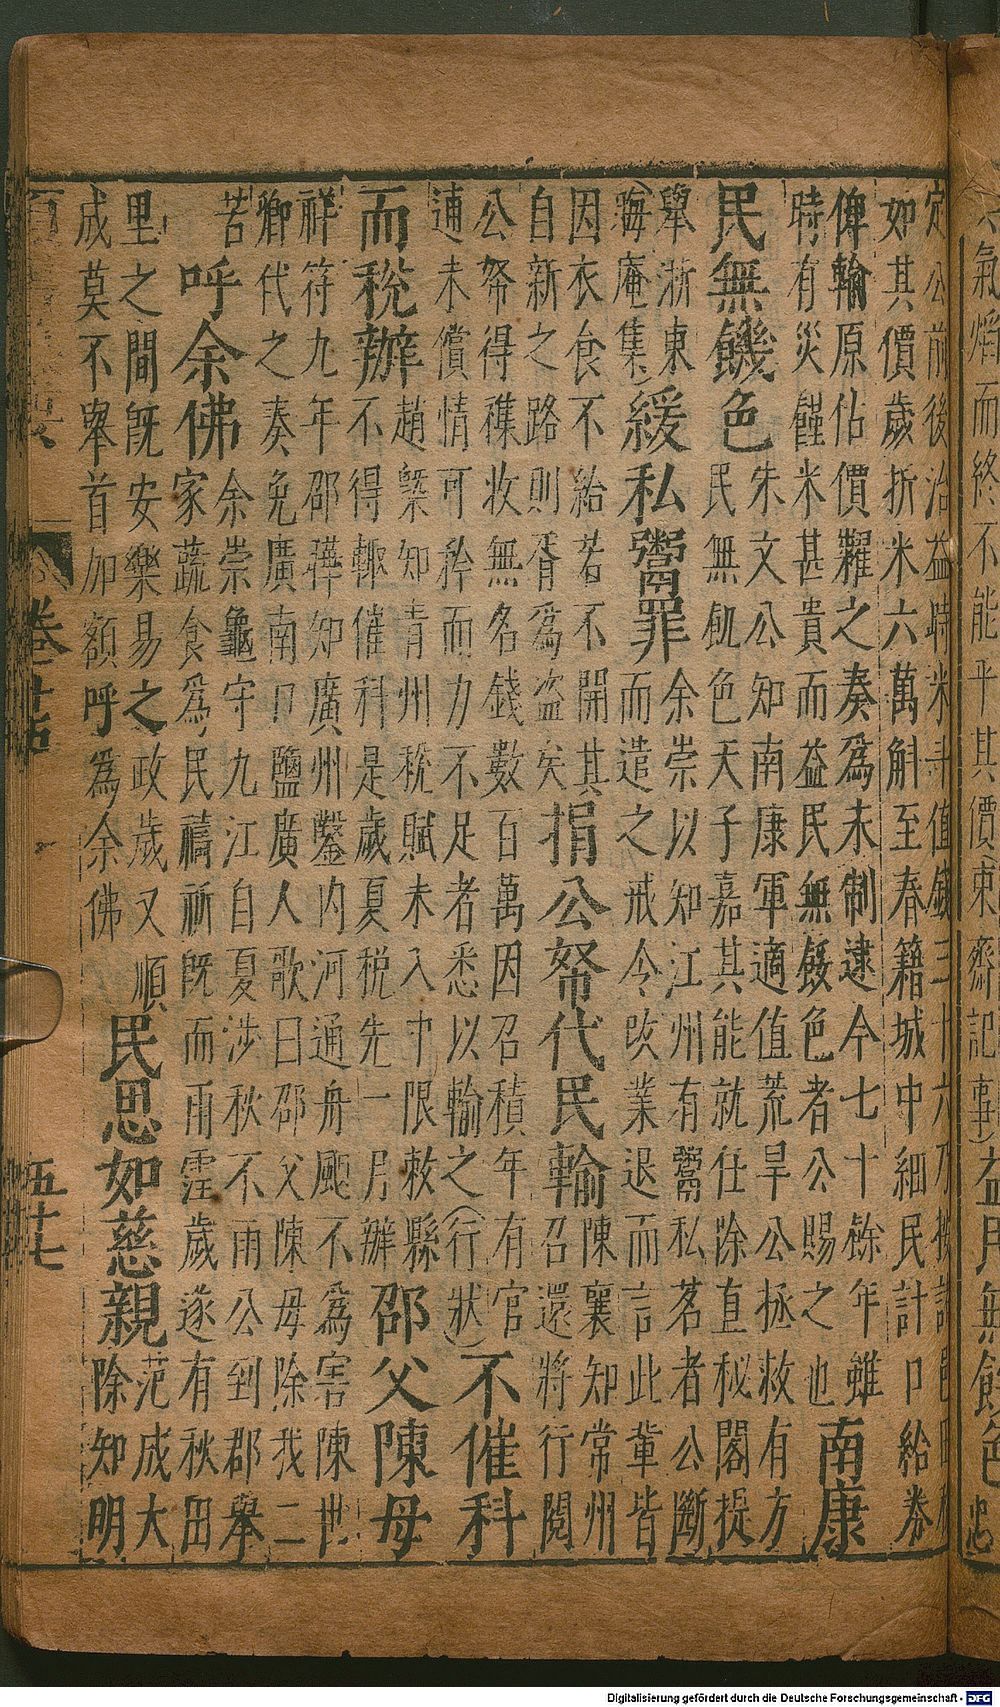 氣熖而終不能平其價東齋記事益民無餒色忠
定公前後治益時米斗值錢三十六乃按諸邑田稅
如其價歲折米六萬斛至春籍城中細民計口給券
俾輸原估價糴之奏為永制逮今七十餘年雖
時有災饉米甚貴而益民無餒色者公賜之也
南康
民無饑色
朱文公知南康軍適值荒旱公拯救有方
民無飢色天子嘉其能就任除直秘閣提
舉浙東
(晦庵集)
緩私鬻罪
余崇以知江州有鬻私茗者公斷
而遣之戒令改業退而言此輩皆
因衣食不給若不開其
自新之路則胥為盜矣
捐公帑代民輸
陳襄知常州
召還將行閱
公帑得穕收無名錢數百萬因召積年有官
逋未償情可矜而力不足者悉以輸之(行狀)
不催科
而稅辦
趙槩知青州稅賦未入中限敕縣
不得輒催科是歲夏稅先一月辦
邵父陳母
祥符九年邵曄知廣州鑿內河通舟颶不為害陳世
卿代之奏免廣南口鹽廣人歌曰邵父陳母除我二
苦
呼余佛
余崇龜守九江自夏涉秋不雨公到郡舉
家蔬食為民禱祈既而雨霪歲遂有秋田
里之間既安樂易之政歲又順
成莫不舉首加額呼為余佛
民思如慈親
范成大
除知明
五十七
Digitalisierung gefördert durch die Deutsche Forschungsgemeinschaft - DFG